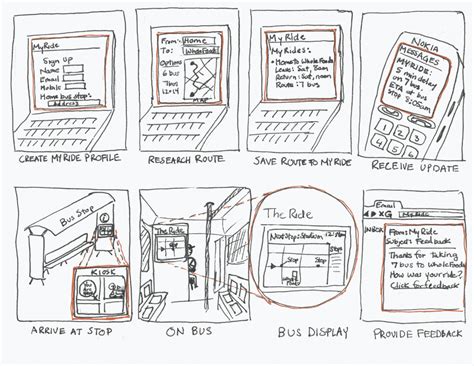 MyRide
Sign Up
Name
Email
Mobile
Home bus stop:
Address
CREATE MYRIDE PROFILE
From: Home
To: Whole Foods
Options
6 bus
7 bus
12:14
MAP
RESEARCH ROUTE
MyRide
MyRides:
Home to Whole Foods
Leave: Sat, 8am
Return: Sat, noon
Route: 7 bus
SAVE ROUTE TO MYRIDE
NOKIA
MESSAGES
MYRIDE:
5 min delay
on 7 bus.
ETA at bus
stop 8:05am
1 2 3
4 5 6
RECEIVE UPDATE
Bus Stop
KIOSK
ARRIVE AT STOP
The Ride
ON BUS
The Ride
Next Stop: Stadium
Stop
Stop
BUS DISPLAY
Email
XG
MyRide
INBOX
From: MyRide
Subject: Feedback
Thanks for taking
7 bus to Whole Foods
How was your ride?
Click for feedback
PROVIDE FEEDBACK